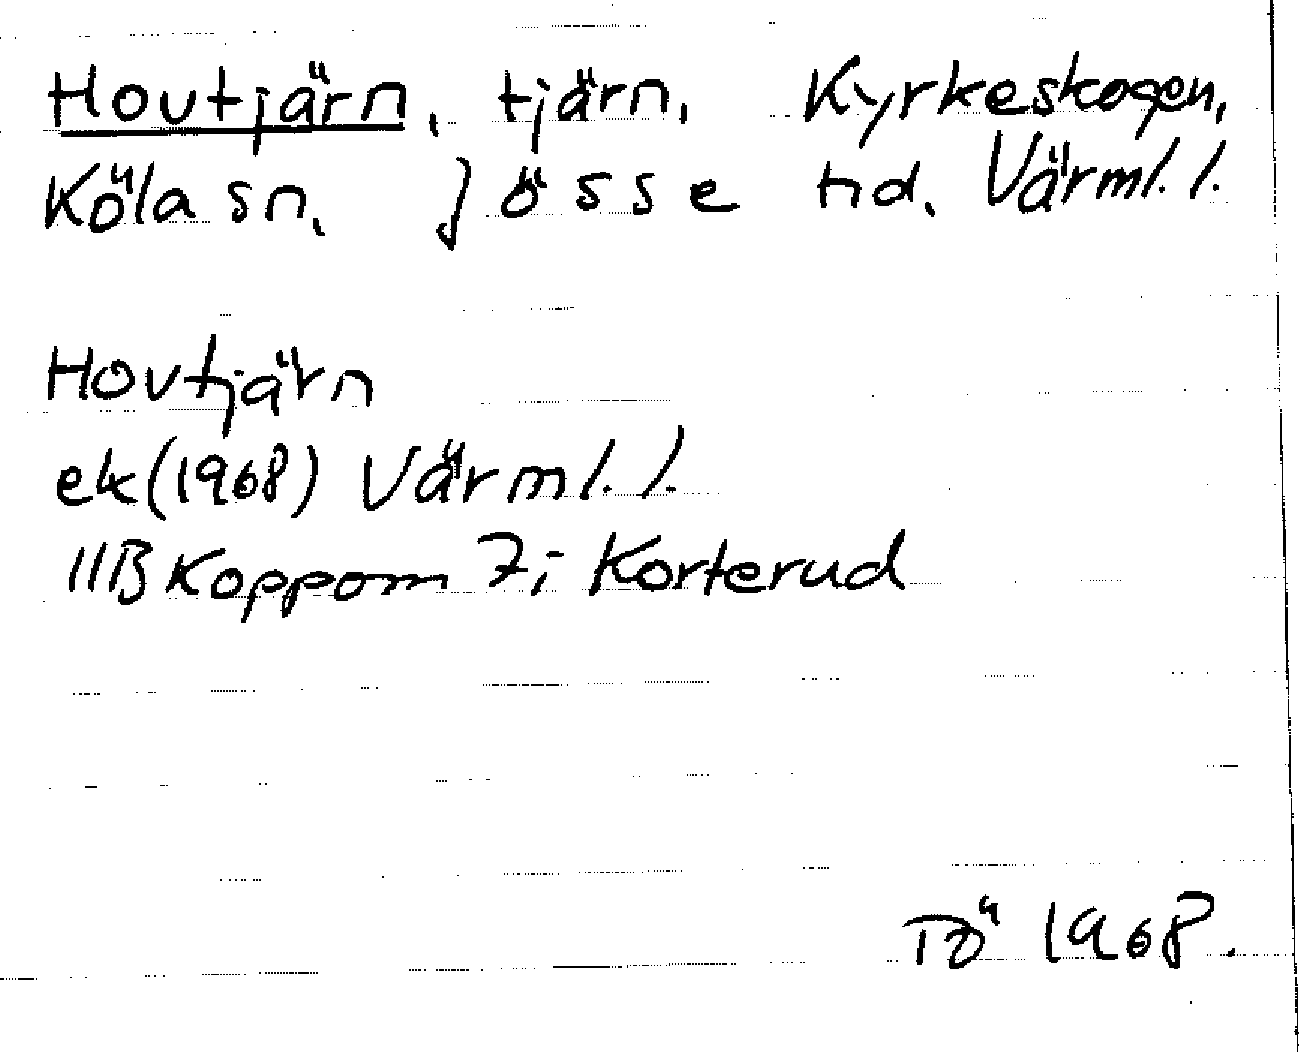 Hovtjärn, tjärn, Kyrkeskogen,
Köla sn, Jösse hd, Värml. l.
Hovtjärn
ek (1968) Värml. l.
11B Koppom 7i Korterud
TÖ 1968.